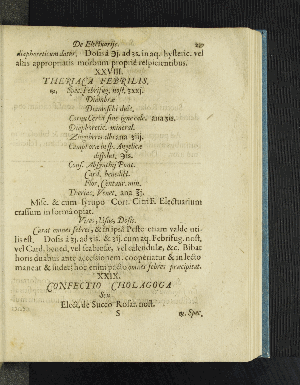 De Electuarijs.
diaphoreticum datur, Dosis à ʒj. ad ʒs. in aq. hysteric. vel
aliis appropriatis morbum propriè respicientibus.
XXVIII.
THERIACA FEBRILIS.
℞. Spec. Febrifug. nost. ʒxxj.
Diambræ
Diamoschi dulc.
Cornu Cervi sine igne calc. ana ʒis.
Diaphoretic. mineral.
Zingiberis alb. ana ʒiij.
Camphoræ in ss. Angelicæ
dissolut. ℈is.
Cons. Absynthij Pont.
Card. benedict.
Flor. Centaur. min.
Theriac. Venet. ana ℥j.
Misc. & cum Syrupo Cort. Citri F. Electuarium
crassum in forma opiat.
Vires, Usus, Dosis.
Curat omnes febres, & in ipsa Peste etiam valde uti-
lis est, Dosis à ʒj. ad ʒis. & ʒij. cum aq. Febrifug. nost.
vel Card. bened, vel scabiosæ, vel calendulæ, &c. Bibat
horis duabus ante accessionem, cooperiatur & in lecto
maneat & sudet; hoc enim pacto omnes febres præcipitat.
XXIX.
CONFECTIO CHOLAGOGA
Seu
Elect. de Succo Rosar. nost.
S
℞. Spec.